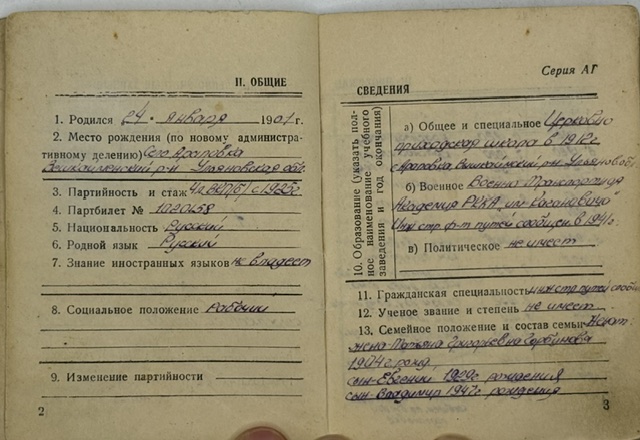 II. ОБЩИЕ
1. Родился 24 Января 1901 г.
2. Место рождения (по новому администра-
тивному делению) Село Араповка
Вешкаймский р-н Ульяновская обл.
3. Партийность и стаж Чл. ВКП(б) с 1925г
4. Партбилет № 1020158
5. Национальность Русский
6. Родной язык Русский
7. Знание иностранных языков не владеет
8. Социальное положение Рабочий
9. Изменение партийности
2
Серия АГ
СВЕДЕНИЯ
10. Образование (указать пол-
ное наименование учебного
заведения и год окончания)
а) Общее и специальное Церковно
приходская школа в 1912г
с Араповка Вешкаймский р-н Ульяновской
б) Военное Военно Транспортная
Академия РККА им Кагановича
Инж стр ф-т путей сообщен. в 1941г
в) Политическое не имеет
11. Гражданская специальность инж стр путей сообщ
12. Ученое звание и степень не имеет
13. Семейное положение и состав семьи Женат
жена Татьяна Григорьевна
1904 г рожд
сын Евгений 1929г рождения
сын Владимир 1947г рождения
3